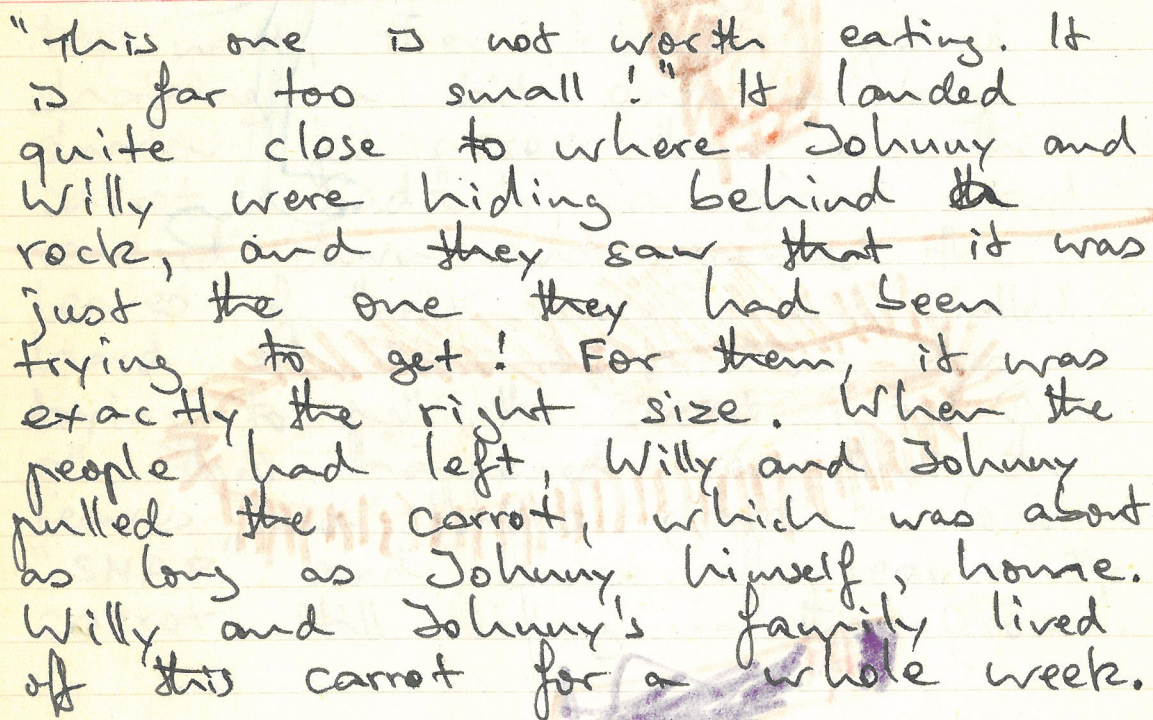 "This one is not worth eating. It
is far too small!" It landed
quite close to where Johnny and
Willy were hiding behind a
rock, and they saw that it was
just the one they had been
trying to get! For them, it was
exactly the right size. When the
people had left, Willy and Johnny
pulled the carrot, which was about
as long as Johnny himself, home.
Willy and Johnny's family lived
off this carrot for a whole week.